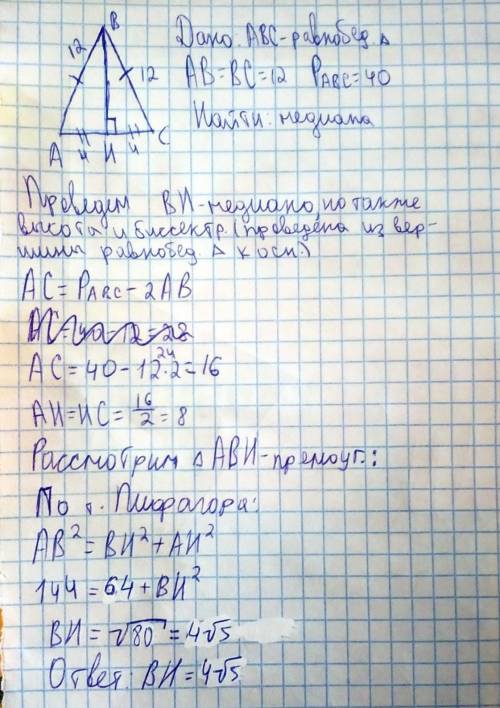 B
12
12
A
4
H
4
C
Дано: ABC-равнобед. Δ
AB=BC=12 PABC=40
Найти: медиана
Проведем BH-медиано, но также
высоты и биссектр. (проведена из вер-
шины равнобед. Δ к осн.)
AC=PABC-2AB
AC=40-12=28
24
AC=40-12·2=16
AH=HC=16/2=8
Рассмотрим Δ ABH-прямоуг.:
По т. Пифагора:
AB²=BH²+AH²
144=64+BH²
BH=√80=4√5
Ответ: BH=4√5